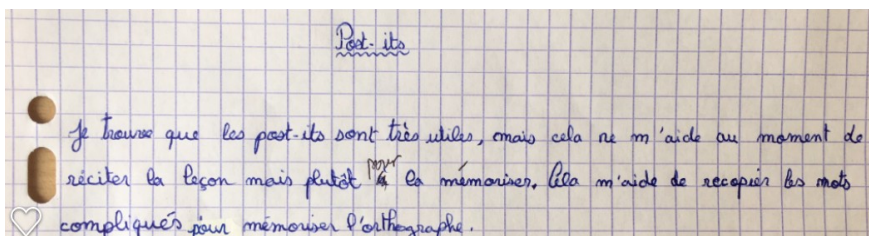 Post-its
Je trouve que les post-its sont très utiles, mais cela ne m'aide au moment de
réciter la leçon mais plutôt pour la mémoriser. Cela m'aide de recopier les mots
compliqués pour mémoriser l'orthographe.